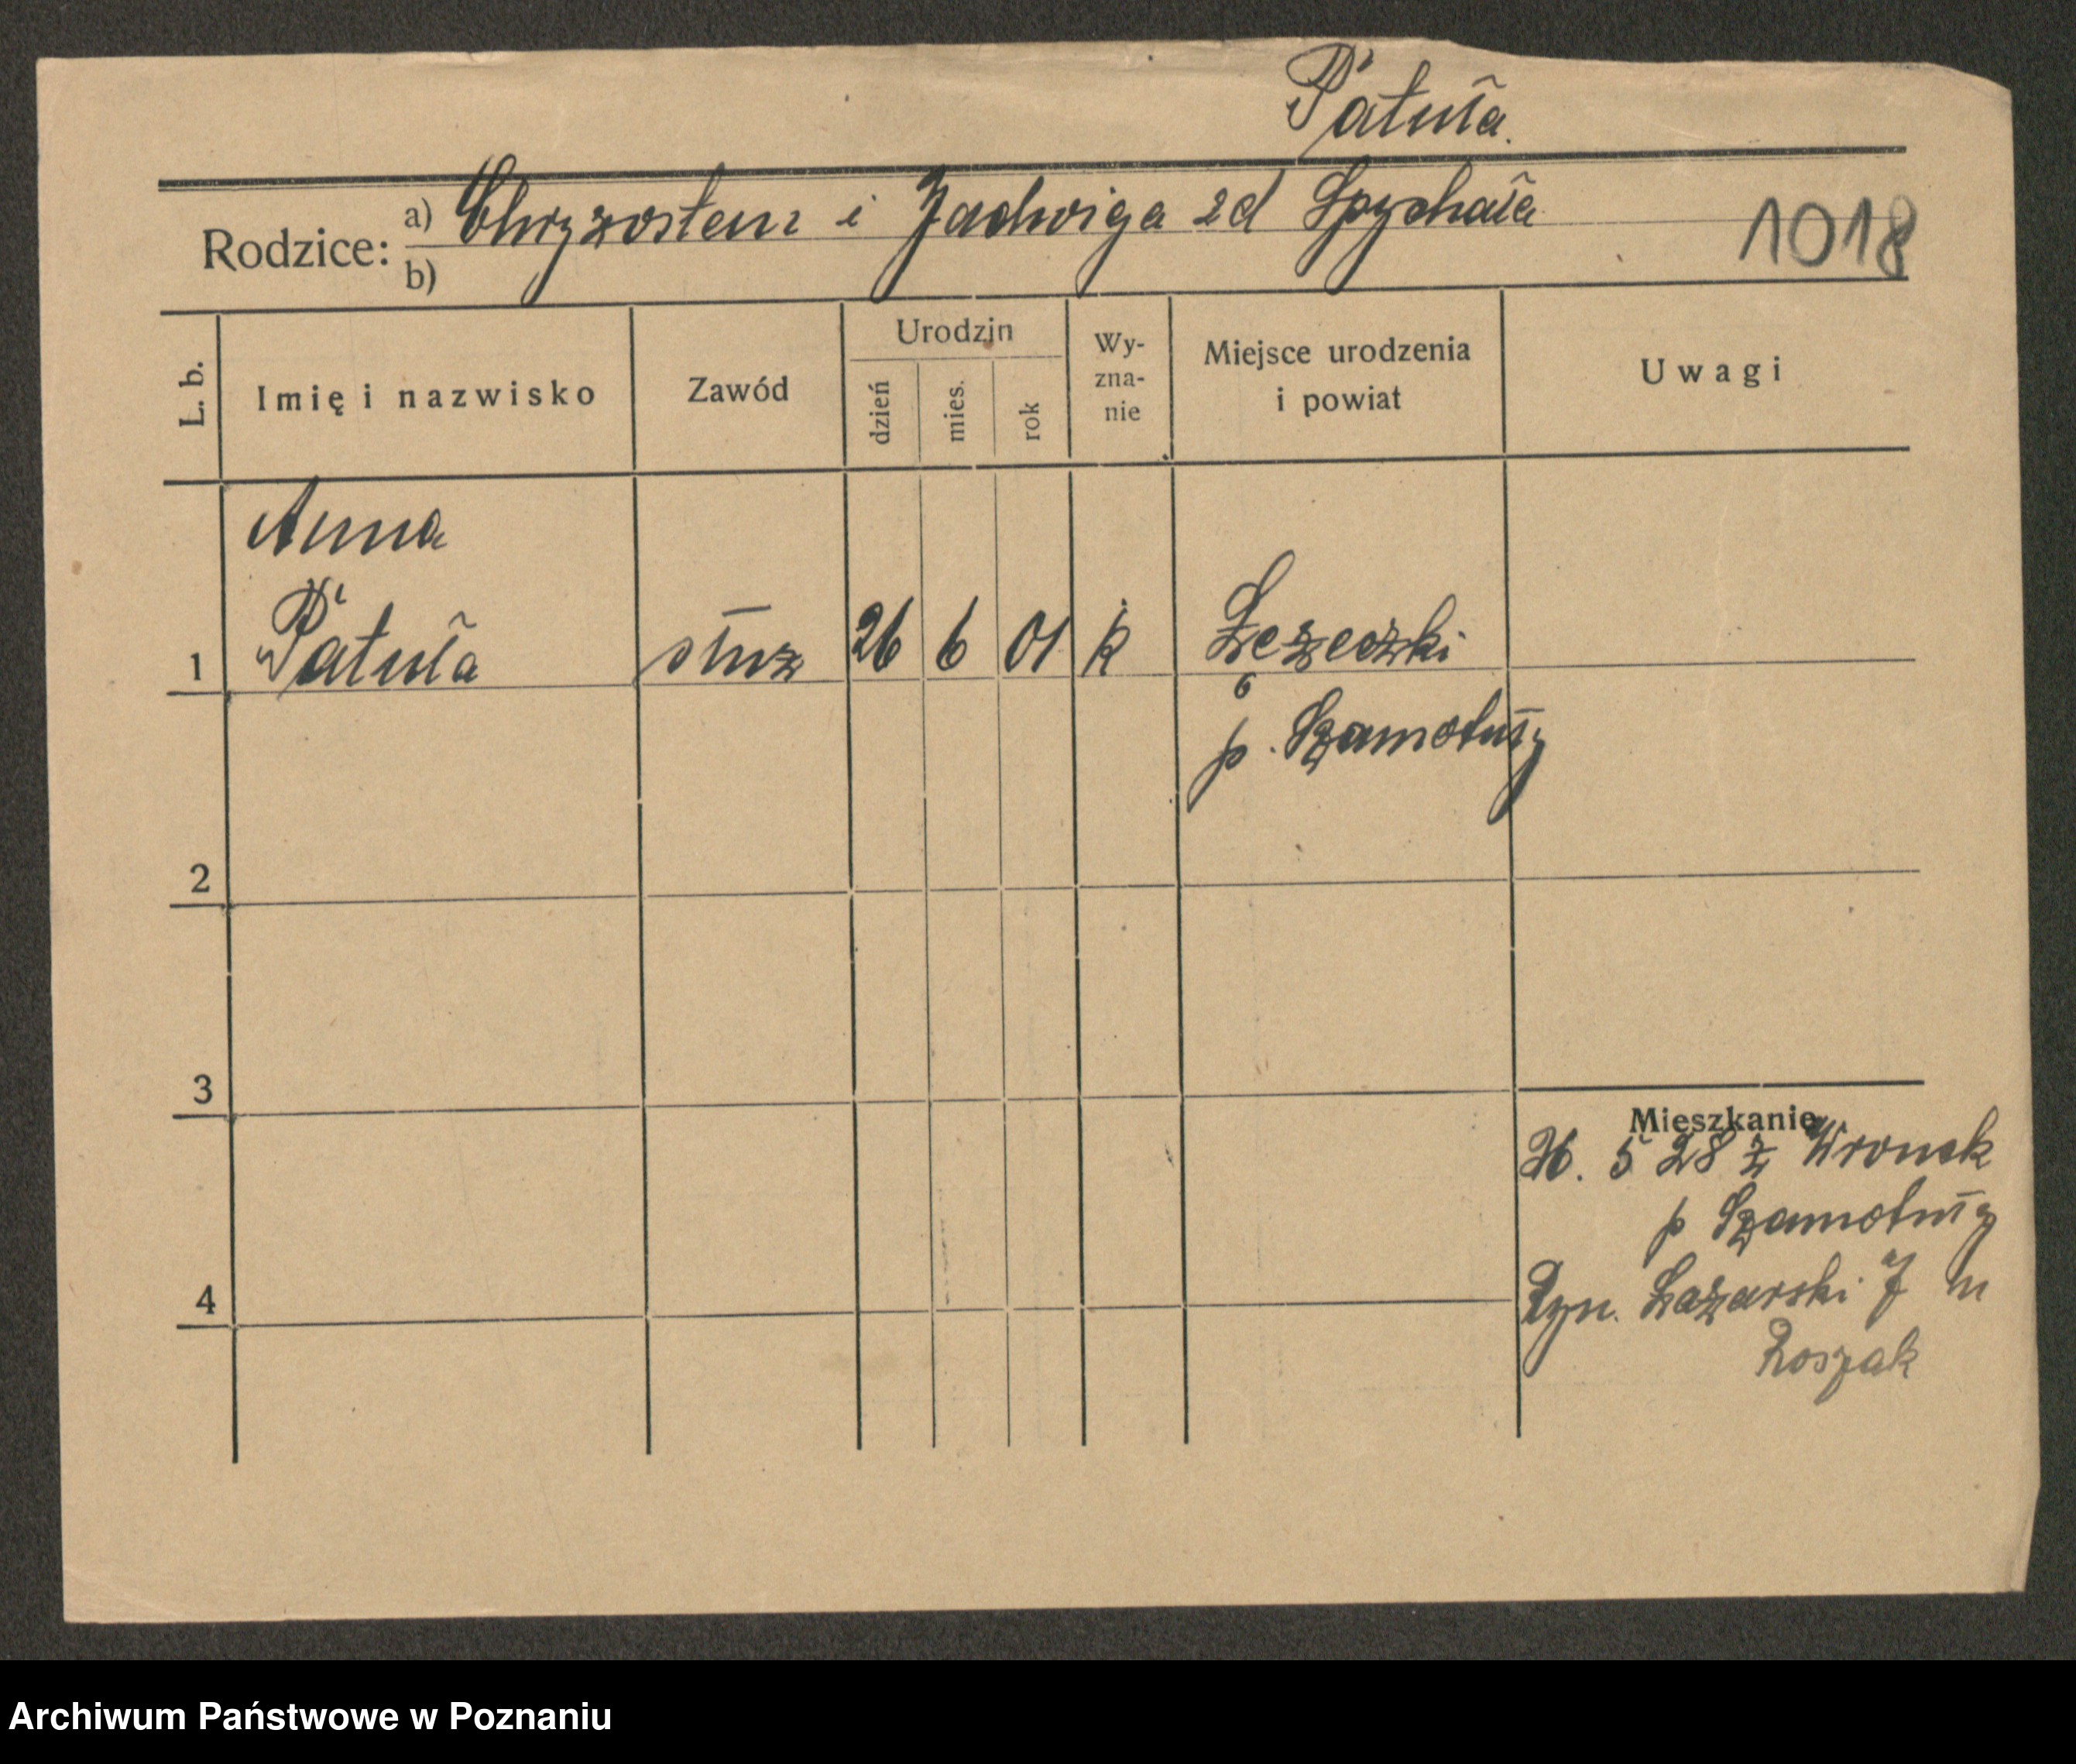 Patuła.
Rodzice: a) Chryzostem i Jadwiga zd Spychała
b)
1018
L. b. Imię i nazwisko Zawód Urodzin dzień mies. rok Wy-zna-nie Miejsce urodzenia i powiat Uwagi
Anna
1 Patuła służ 26 6 01 k Łężeczki
p. Szamotuły
2
3
Mieszkanie
26. 5 28 z Wronek
p Szamotuły
4 Ryn. Łazarski 7 m
Roszak
Archiwum Państwowe w Poznaniu